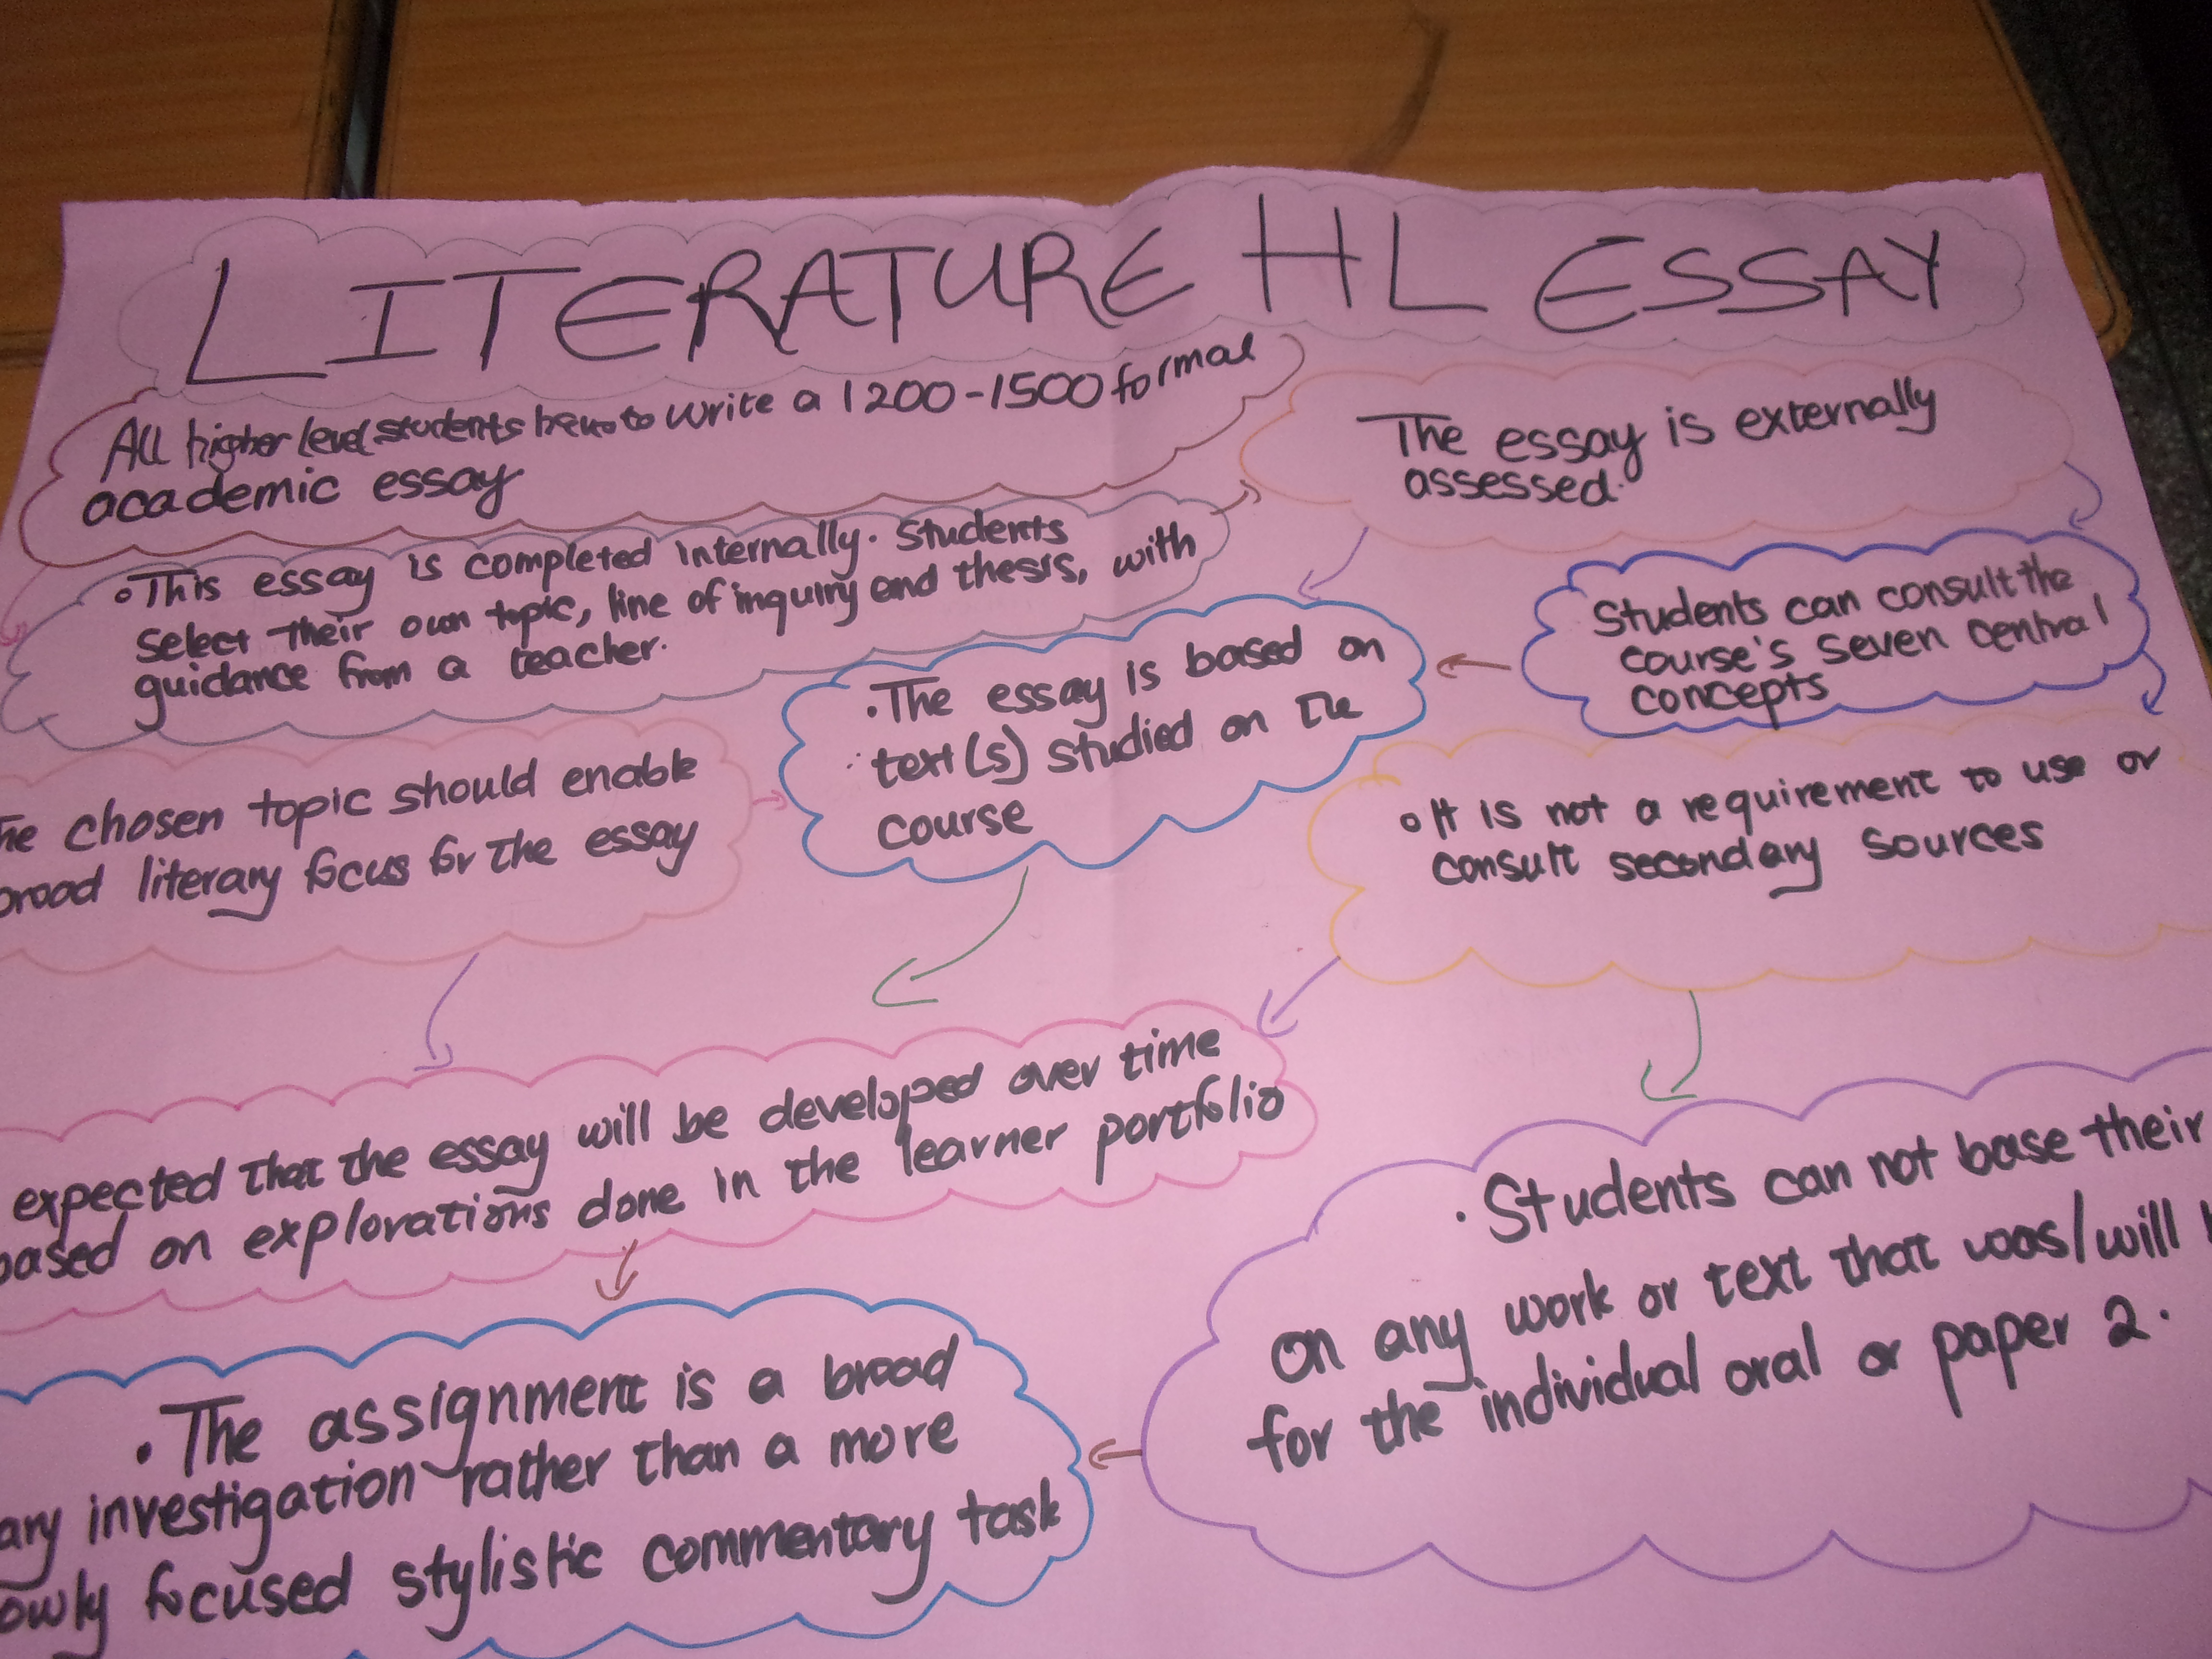 LITERATURE HL ESSAY
All higher level students have to write a 1200-1500 formal
academic essay
The essay is externally
assessed.
This essay is completed internally. Students
select their own topic, line of inquiry and thesis, with
guidance from a teacher.
Students can consult the
course's seven central
concepts
.The essay is based on
text(s) studied on the
course
he chosen topic should enable
broad literary focus for the essay
It is not a requirement to use or
consult secondary sources
expected that the essay will be developed over time
based on explorations done in the learner portfolio
. Students can not base their
on any work or text that was/will
for the individual oral or paper 2.
. The assignment is a broad
ary investigation rather than a more
owly focused stylistic commentary task